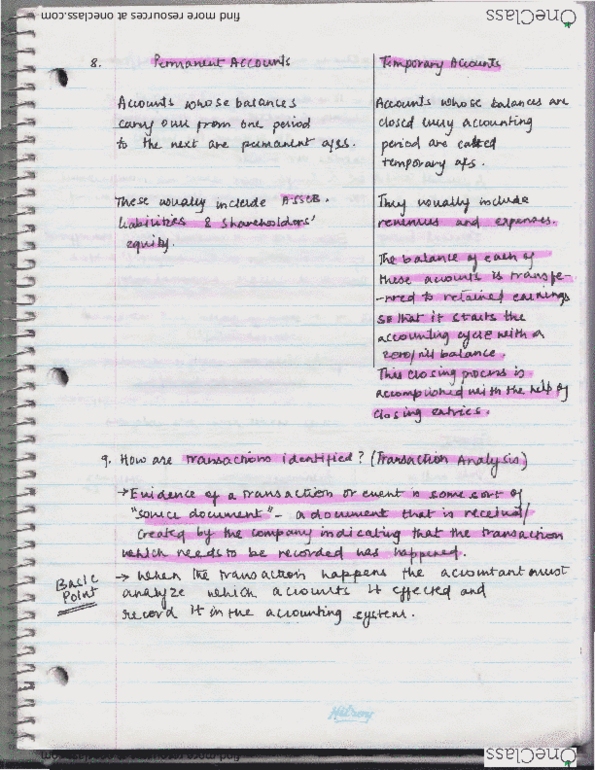 find more resources at oneclass.com
OneClass
8. Permanent Accounts
Accounts whose balances
carry over from one period
to the next are permanent a/cs.
These usually include Assets.
liabilities & shareholders'
equity.
Temporary Accounts
Accounts whose balances are
closed every accounting
period are called
temporary a/cs.
They usually include
revenues and expenses.
The balance of each of
these accounts is transfe-
-rred to retained earnings
so that it starts the
accounting cycle with a
zero/nil balance.
This closing process is
accomplished with the help of
closing entries.
9. How are transactions identified? (Transaction Analysis)
→ Evidence of a transaction or event is some sort of
"source document" - a document that is received/
created by the company indicating that the transaction
which needs to be recorded has happened.
Basic
Point
→ When the transaction happens the accountant must
analyze which accounts it effected and
record it in the accounting system.
find more resources at oneclass.com
OneClass